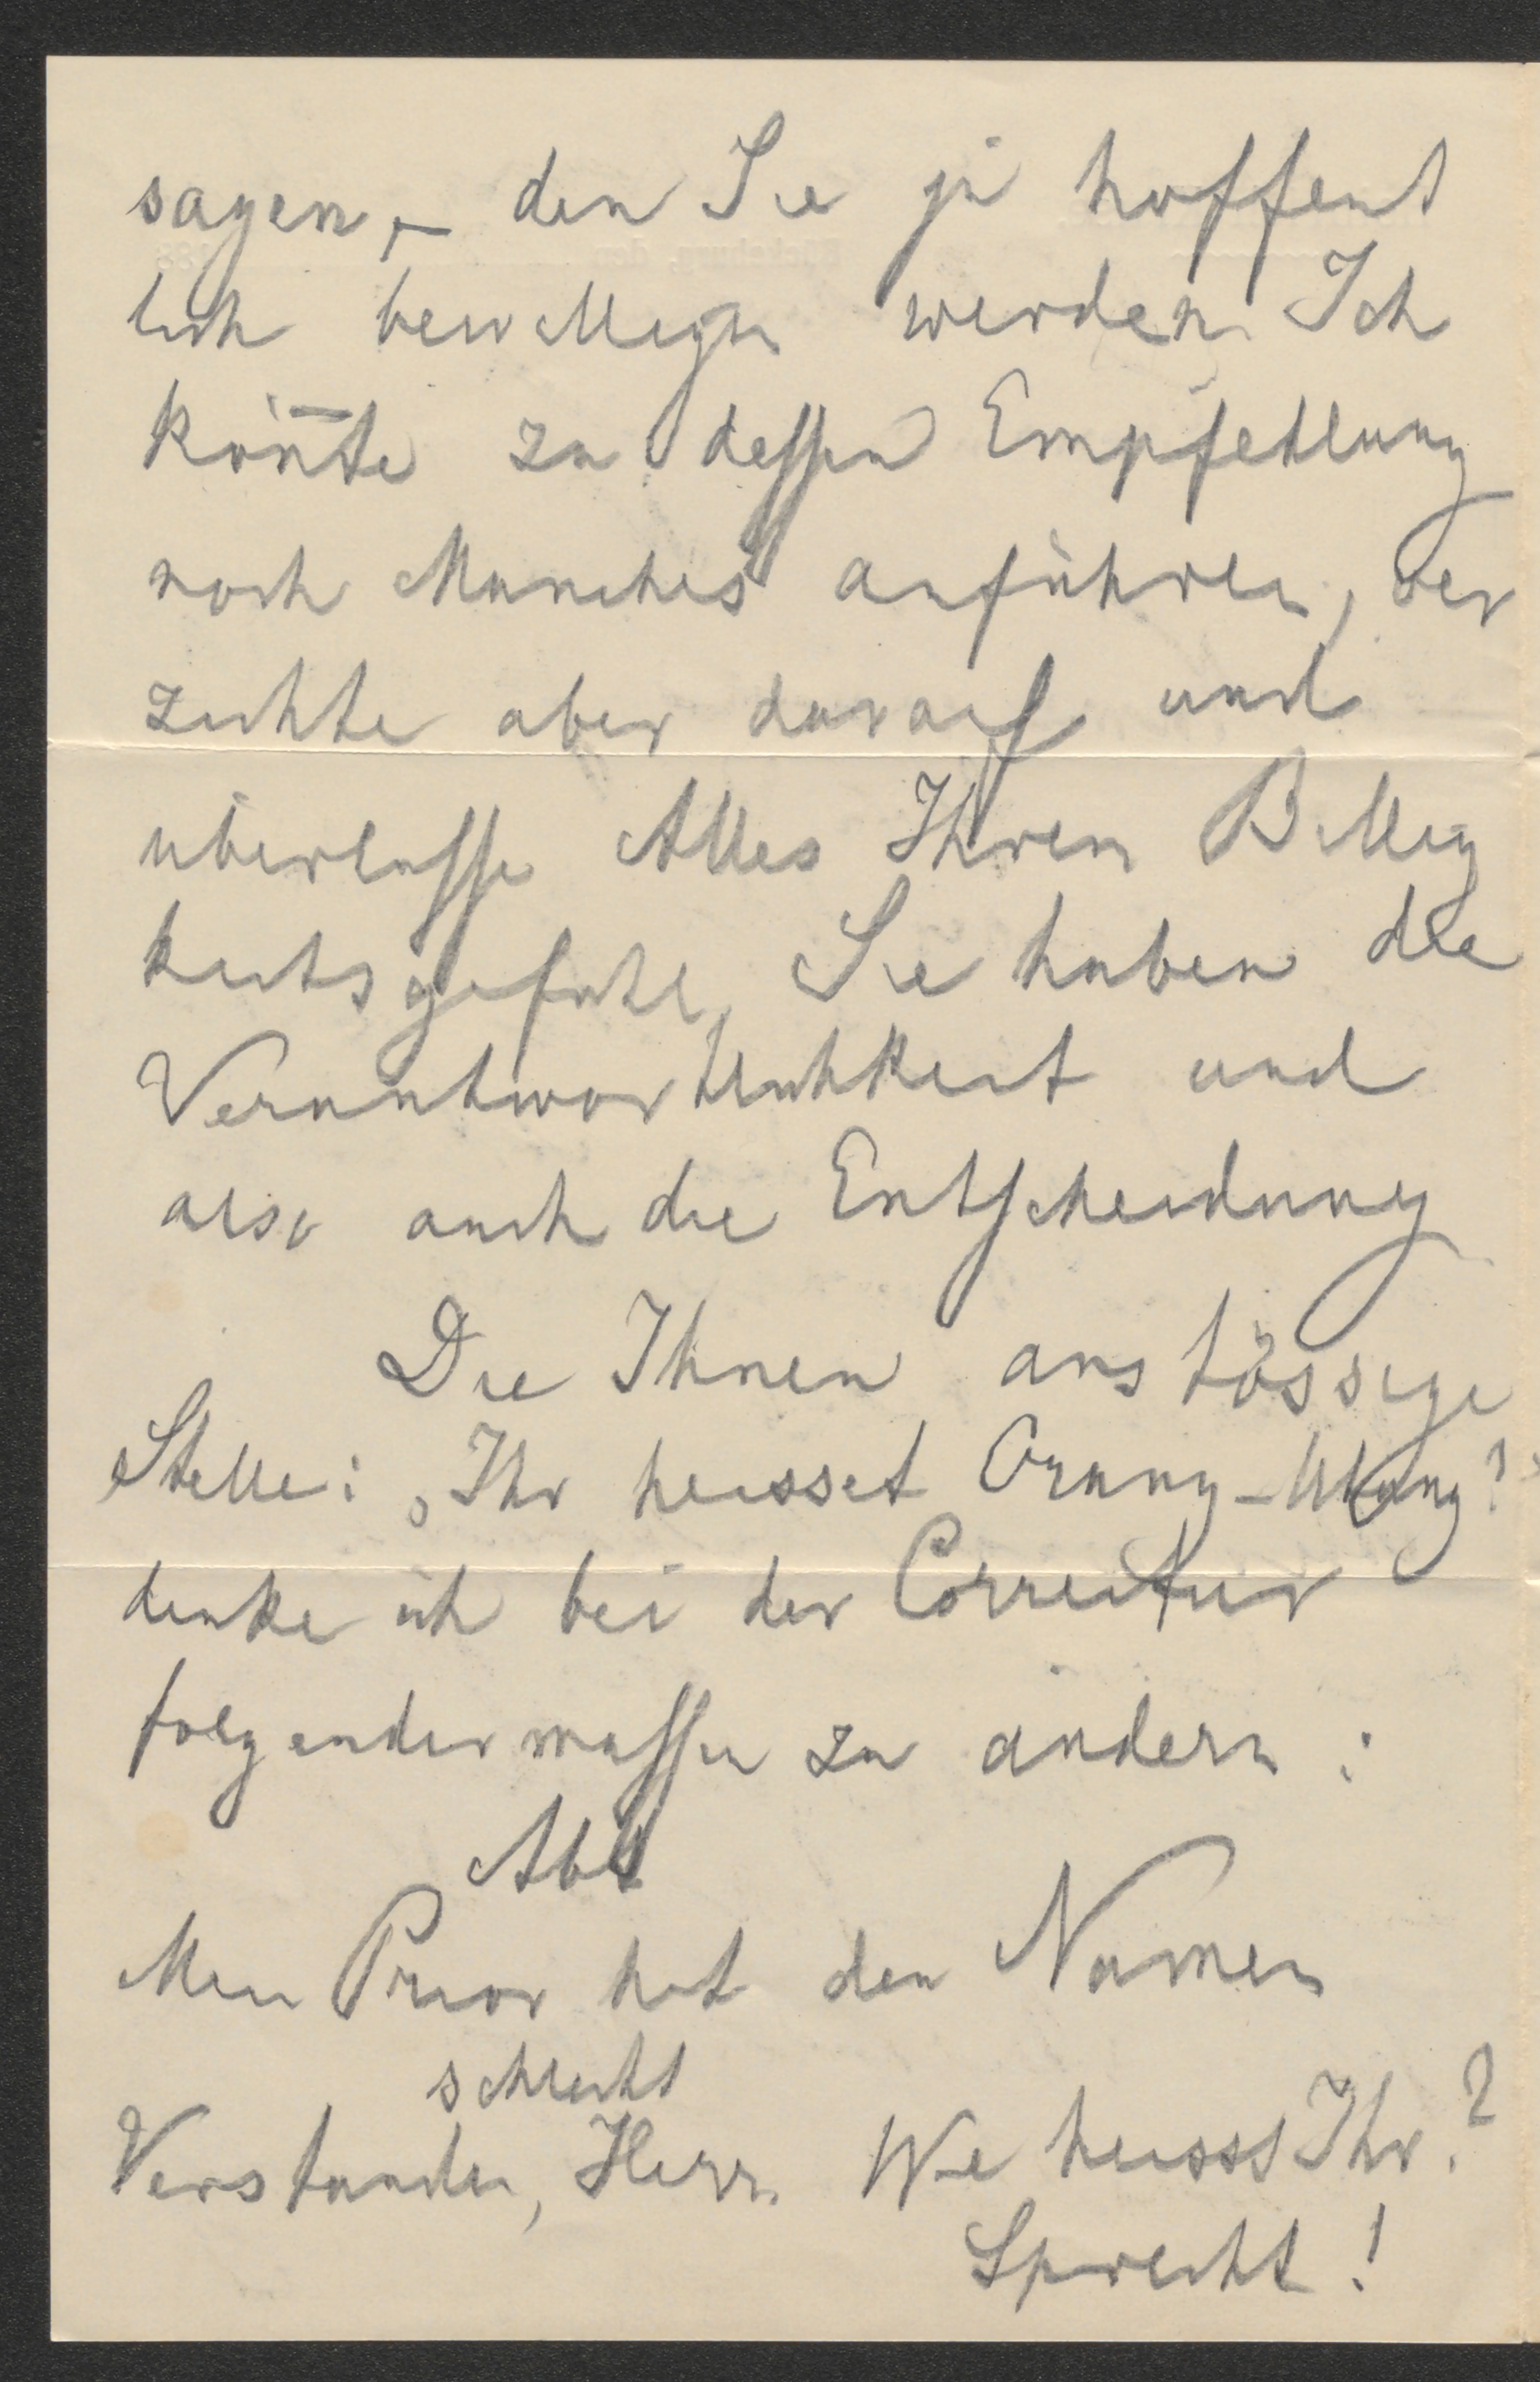 sagen, – den Sie ja hoffent
lich bewilligen werden. Ich
kön̄te zu dessen Empfehlung
noch Manches anführen, ver
zichte aber darauf und
überlasse Alles Ihrem Billig
keitsgefühl, Sie haben die
Verantwortlichkeit und
also auch die Entscheidung
Die Ihnen anstössige
Stelle: „Ihr heisset Orang-Utang?"
denke ich bei der Correctur
folgendermassen zu ändern:
Abt
Mein Prior hat den Namen
schlecht
Verstanden, Herr. Wie heisst Ihr?
Sprecht!